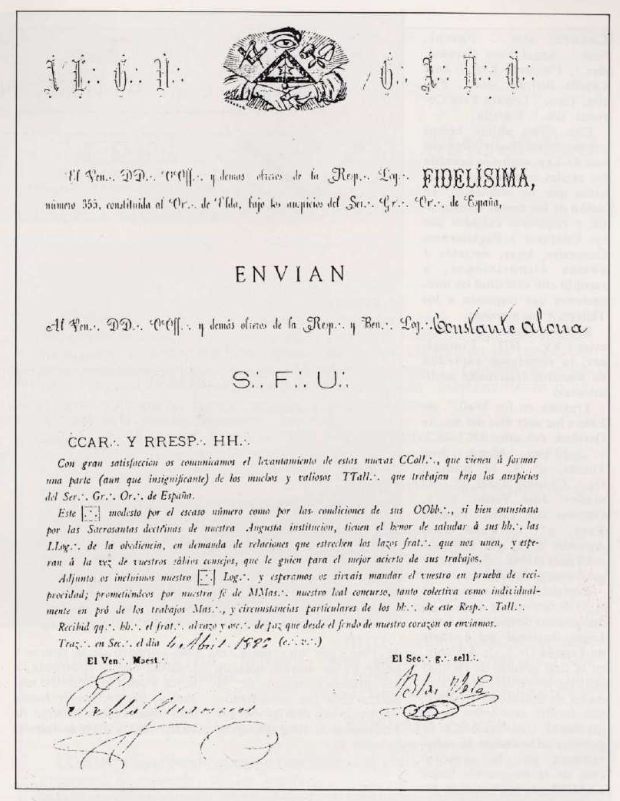 A∴ L∴ G∴ D∴ G∴ A∴ D∴ U∴
El Ven∴ DD∴ OOff∴ y demas obreros de la Resp∴ Log∴ FIDELÍSIMA,
número 355, constituida al Or∴ de Elda, bajo los auspicios del Ser∴ Gr∴ Or∴ de España,
ENVIAN
Al Ven∴ DD∴ OOff∴ y demás obreros de la Resp∴ y Ben∴ Log∴ Constante Alona
S∴ F∴ U∴
CCAR∴ Y RRESP∴ HH∴
Con gran satisfaccion os comunicamos el levantamiento de estas nuevas CColl∴, que vienen á formar
una parte (aun que insignificante) de los muchos y valiosos TTall∴ que trabajan bajo los auspicios
del Ser∴ Gr∴ Or∴ de España.
Este [∴] modesto por el escaso número como por las condiciones de sus OObb∴, si bien entusiasta
por las Sacrosantas doctrinas de nuestra Augusta institucion, tienen el honor de saludar á sus hh∴ las
LLog∴ de la obediencia, en demanda de relaciones que estrechen los lazos frat∴ que nos unen, y espe-
ran á la vez de vuestros sábios consejos, que le guien para el mejor acierto de sus trabajos.
Adjunto os incluimos nuestro [∴] Log∴ y esperamos os sirvais mandar el vuestro en prueba de reci-
procidad; prometiéndoos por nuestra fé de MMas∴ nuestro leal concurso, tanto colectiva como individual-
mente en pró de los trabajos Mas∴, y circunstancias particulares de los hh∴ de este Resp∴ Tall∴
Recibid qq∴ hh∴ el frat∴ abrazo y osc∴ de paz que desde el fondo de nuestro corazon os enviamos.
Traz∴ en Sec∴ el dia 4 Abril (e∴ v∴)
El Ven∴ Maest∴ El Sec∴ g∴ sell∴
Pablo Blas Vera